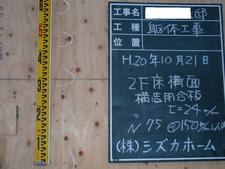 工事名 邸
工種 躯体工事
位置
H20年10月21日
2F床構面
構造用合板
t=24㎜
N75 @150
(株)シズカホーム